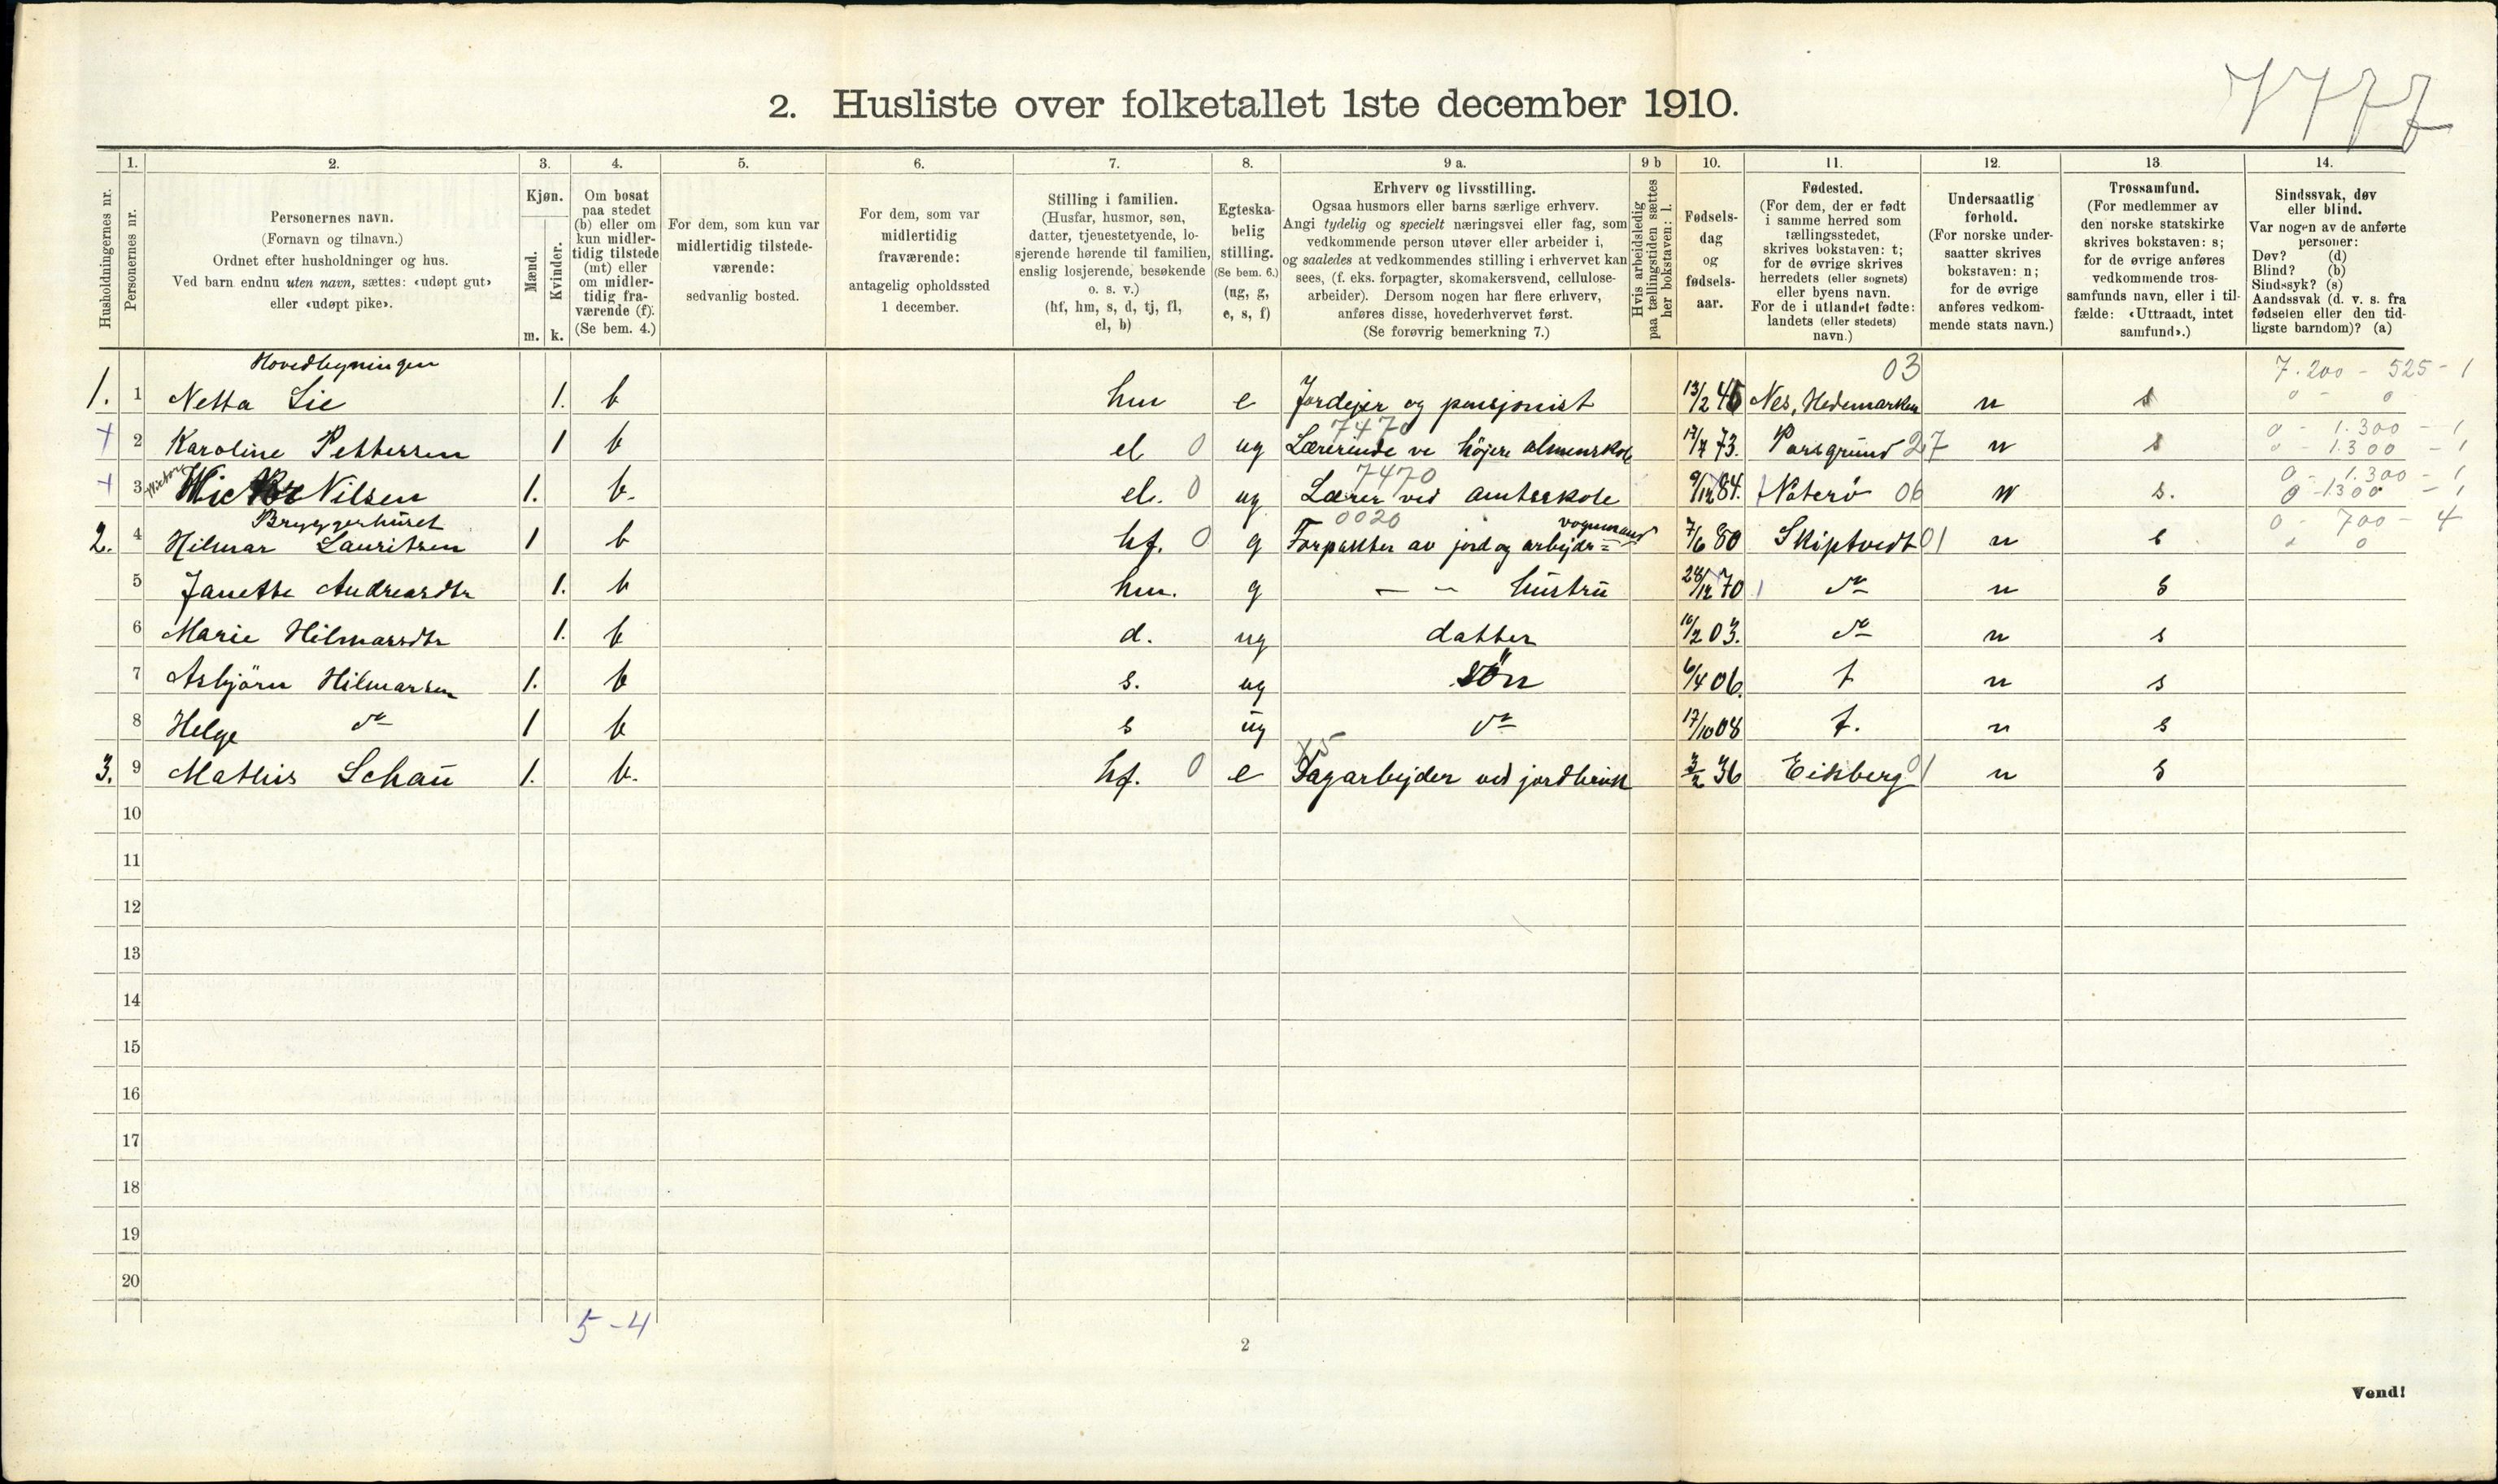 7777
2. Husliste over folketallet 1ste december 1910.
1. 2. 3. 4. 5. 6. 7. 8. 9 a. 9 b 10. 11. 12. 13 14.
Husholdningernes nr.
Personernes nr.
Personernes navn.
(Fornavn og tilnavn.)
Ordnet efter husholdninger og hus.
Ved barn endnu uten navn, sættes: «udøpt gut»
eller «udøpt pike».
Kjøn.
Mænd.
Kvinder.
m. k.
Om bosat
paa stedet
(b) eller om
kun midler-
tidig tilstede
(mt) eller
om midler-
tidig fra-
værende (f).
(Se bem. 4.)
For dem, som kun var
midlertidig tilstede-
værende:
sedvanlig bosted.
For dem, som var
midlertidig
fraværende:
antagelig opholdssted
1 december.
Stilling i familien.
(Husfar, husmor, søn,
datter, tjenestetyende, lo-
sjerende hørende til familien,
enslig losjerende, besøkende
o. s. v.)
(hf, hm, s, d, tj, fl,
el, b)
Egteska-
belig
stilling.
(Se bem. 6.)
(ug, g,
e, s, f)
Erhverv og livsstilling.
Ogsaa husmors eller barns særlige erhverv.
Angi tydelig og specielt næringsvei eller fag, som
vedkommende person utøver eller arbeider i,
og saaledes at vedkommendes stilling i erhvervet kan
sees, (f. eks. forpagter, skomakersvend, cellulose-
arbeider). Dersom nogen har flere erhverv,
anføres disse, hovederhvervet først.
(Se forøvrig bemerkning 7.)
Hvis arbeidsledig
paa tællingstiden sættes
her bokstaven: l.
Fødsels-
dag
og
fødsels-
aar.
Fødested.
(For dem, der er født
i samme herred som
tællingsstedet,
skrives bokstaven: t;
for de øvrige skrives
herredets (eller sognets)
eller byens navn.
For de i utlandet fødte:
landets (eller stedets)
navn.)
Undersaatlig
forhold.
(For norske under-
saatter skrives
bokstaven: n;
for de øvrige
anføres vedkom-
mende stats navn.)
Trossamfund.
(For medlemmer av
den norske statskirke
skrives bokstaven: s;
for de øvrige anføres
vedkommende tros-
samfunds navn, eller i til-
fælde: «Uttraadt, intet
samfund».)
Sindssvak, døv
eller blind.
Var nogen av de anførte
personer:
Døv? (d)
Blind? (b)
Sindssyk? (s)
Aandssvak (d. v. s. fra
fødselen eller den tid-
ligste barndom)? (a)
Hovedbygningen 03 7.200 - 525 - 1
1. 1 Netta Lie 1. b hm e Jordejer og pensjonist 13/2 46 Nes, Hedemarken n s 0 - 0
7470 0 - 1.300 - 1
+ 2 Karoline Pettersen 1 b el 0 ug Lærerinde ve højere almenskole 17/7 73. Porsgrund 27 n s 0 - 1.300 - 1
Victor 7470 0 - 1.300 - 1
+ 3 Wictor Nilsen 1. b. el. 0 ug Lærer ved amtsskole 9/12 84. Nøterö 06 n s. 0 - 1300 - 1
Bryggerhuset 0020 vognmand 0 - 700 - 4
2. 4 Hilmar Lauritsen 1 b hf. 0 g Forpakter av jord og arbejds= 7/6 80 Skiptvedt 01 n s 0
5 Janette Andreasdtr 1. b hm. g — — hustru 28/12 70 do n s
6 Marie Hilmarsdtr 1. b d. ug datter 16/2 03. do n s
7 Asbjörn Hilmarsen 1. b s. ug sön 6/4 06. t n s
8 Helge do 1 b s ug do 17/10 08 t. n s
3. 9 Mathis Schau 1. b. hf. 0 e Dagarbejder ved jordbruk 3/2 36 Eidsberg 01 n s
10
11
12
13
14
15
16
17
18
19
20
5 - 4
2
Vend!